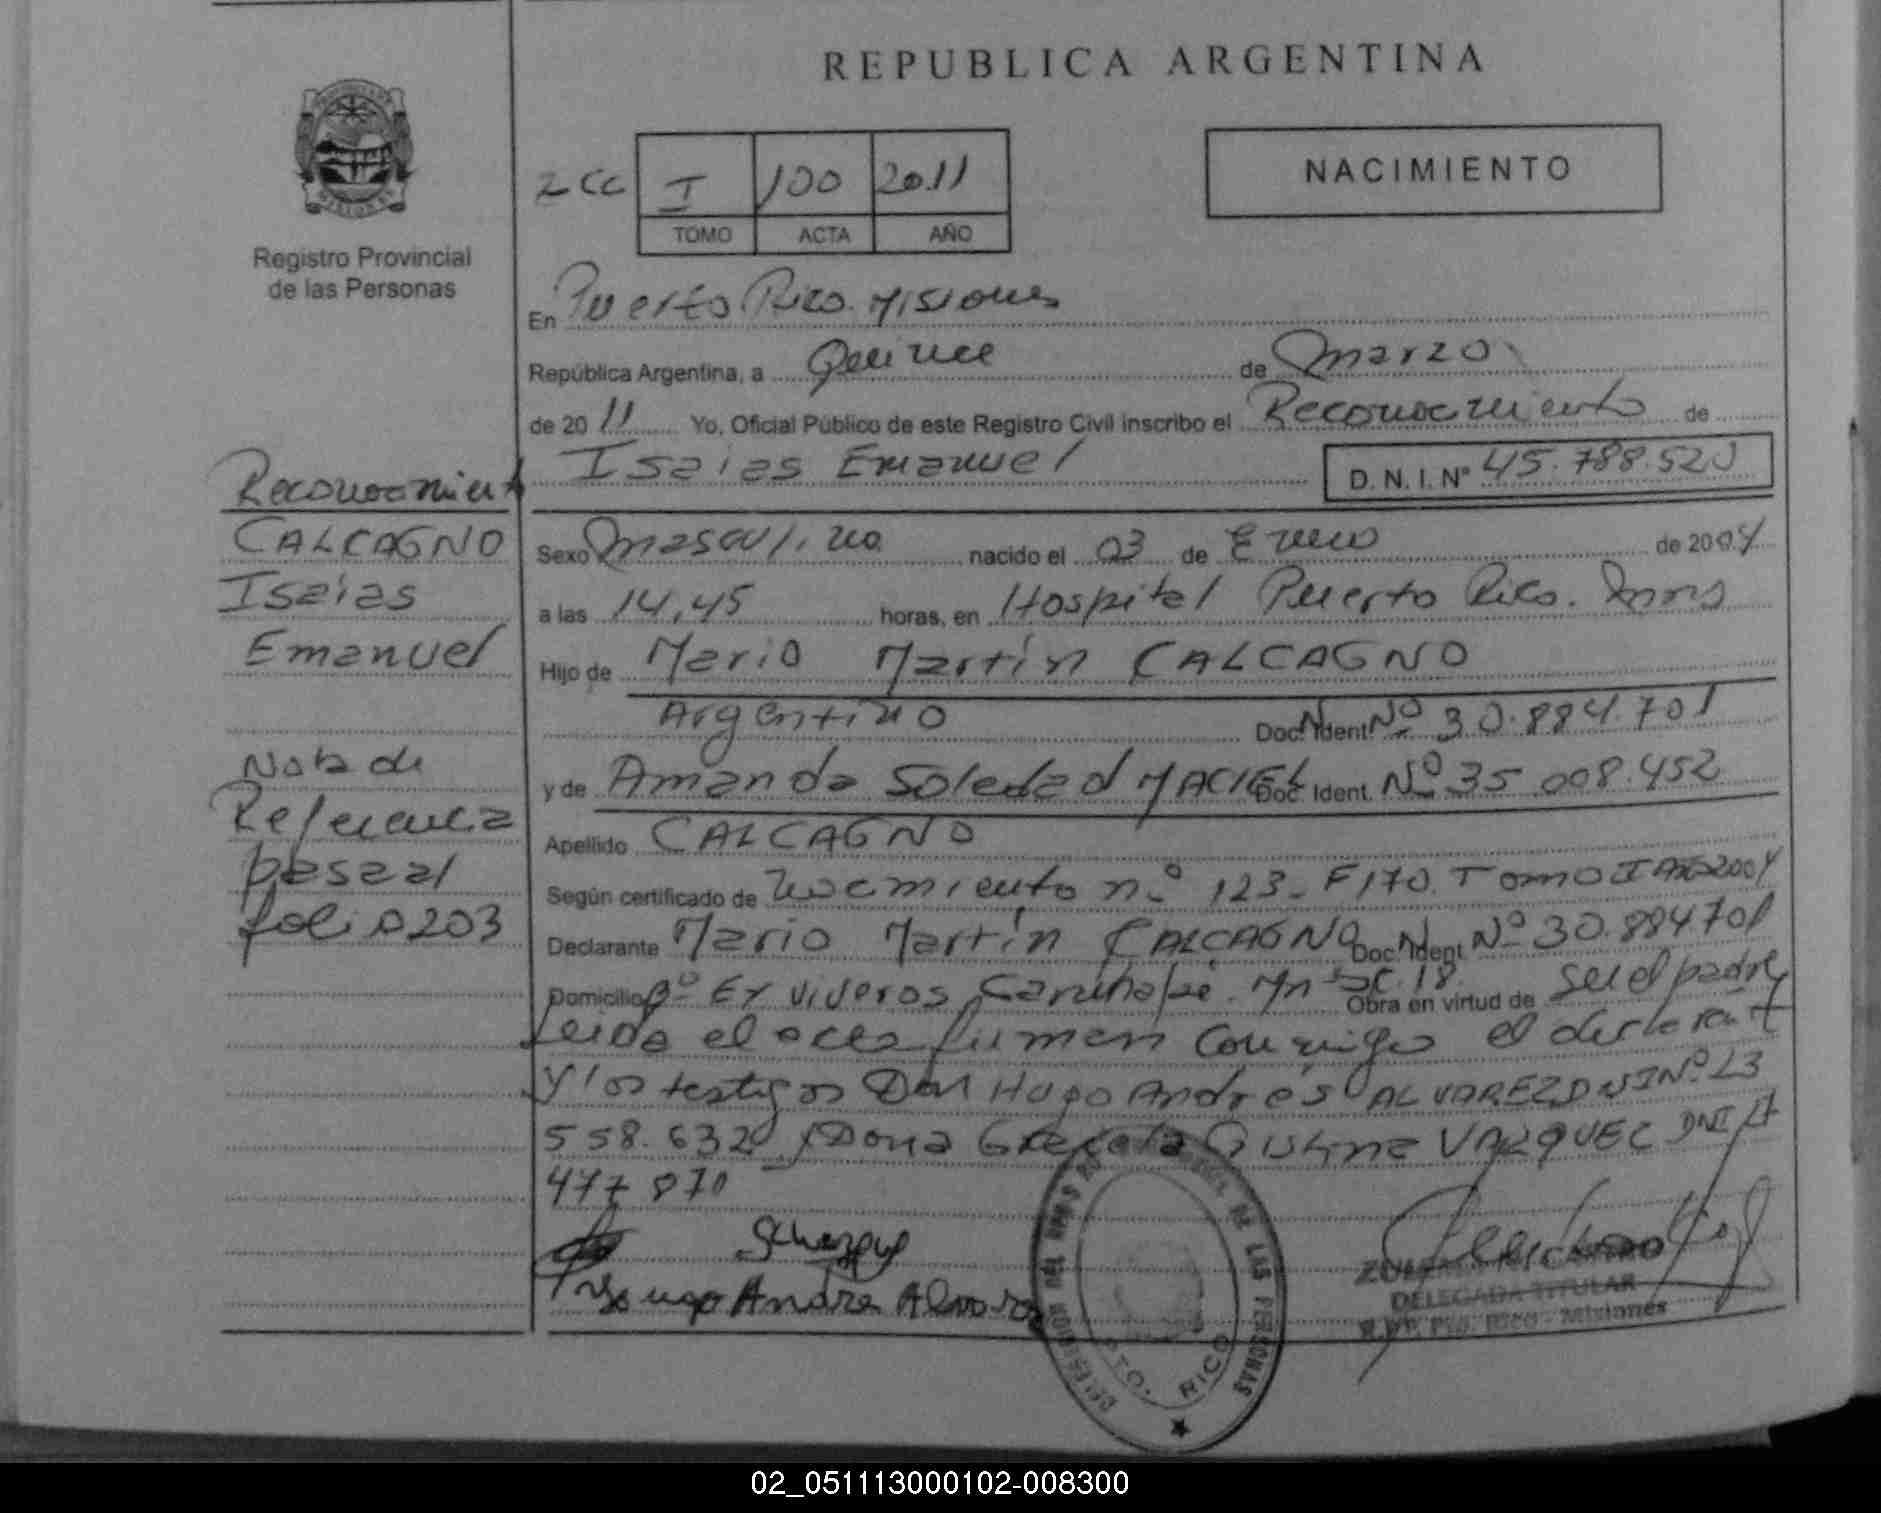 REPUBLICA ARGENTINA
NACIMIENTO
2 CC I 100 2011
TOMO ACTA AÑO
Registro Provincial
de las Personas
En Puerto Rico. Misiones
República Argentina, a Quince de Marzo
de 2011 Yo, Oficial Público de este Registro Civil inscribo el Reconocimiento de
Isaias Emanuel D. N. I. Nº 45.788.520
Sexo Masculino nacido el 03 de Enero de 2004
a las 14,45 horas, en Hospital Puerto Rico. Mnes
Hijo de Mario Martín CALCAGNO
Argentino Doc. Ident. Nº 30.884.701
y de Amanda Soledad MACIEL Doc. Ident. Nº 35.008.452
Apellido CALCAGNO
Según certificado de Nacimiento nº 123- F170. Tomo I 2004
Declarante Mario Martín CALCAGNO Doc. Ident. Nº 30.884701
Domicilio Bº Ex viveros Obra en virtud de ser el padre
Leida el acta firman conmigo el declarant
y los testigos Don Hugo Andrés ALVAREZ DNI Nº 23
558.632 y Doña Cristina VAZQUEZ DNI 17
477 870
Hugo Andres Alvarez
DELEGADA TITULAR
Pto. Rico - Misiones
DE LAS PERSONAS
PTO. RICO
Reconocimient
CALCAGNO
Isaías
Emanuel
Nota de
Referencia
pasa al
folio 203
02_051113000102-008300